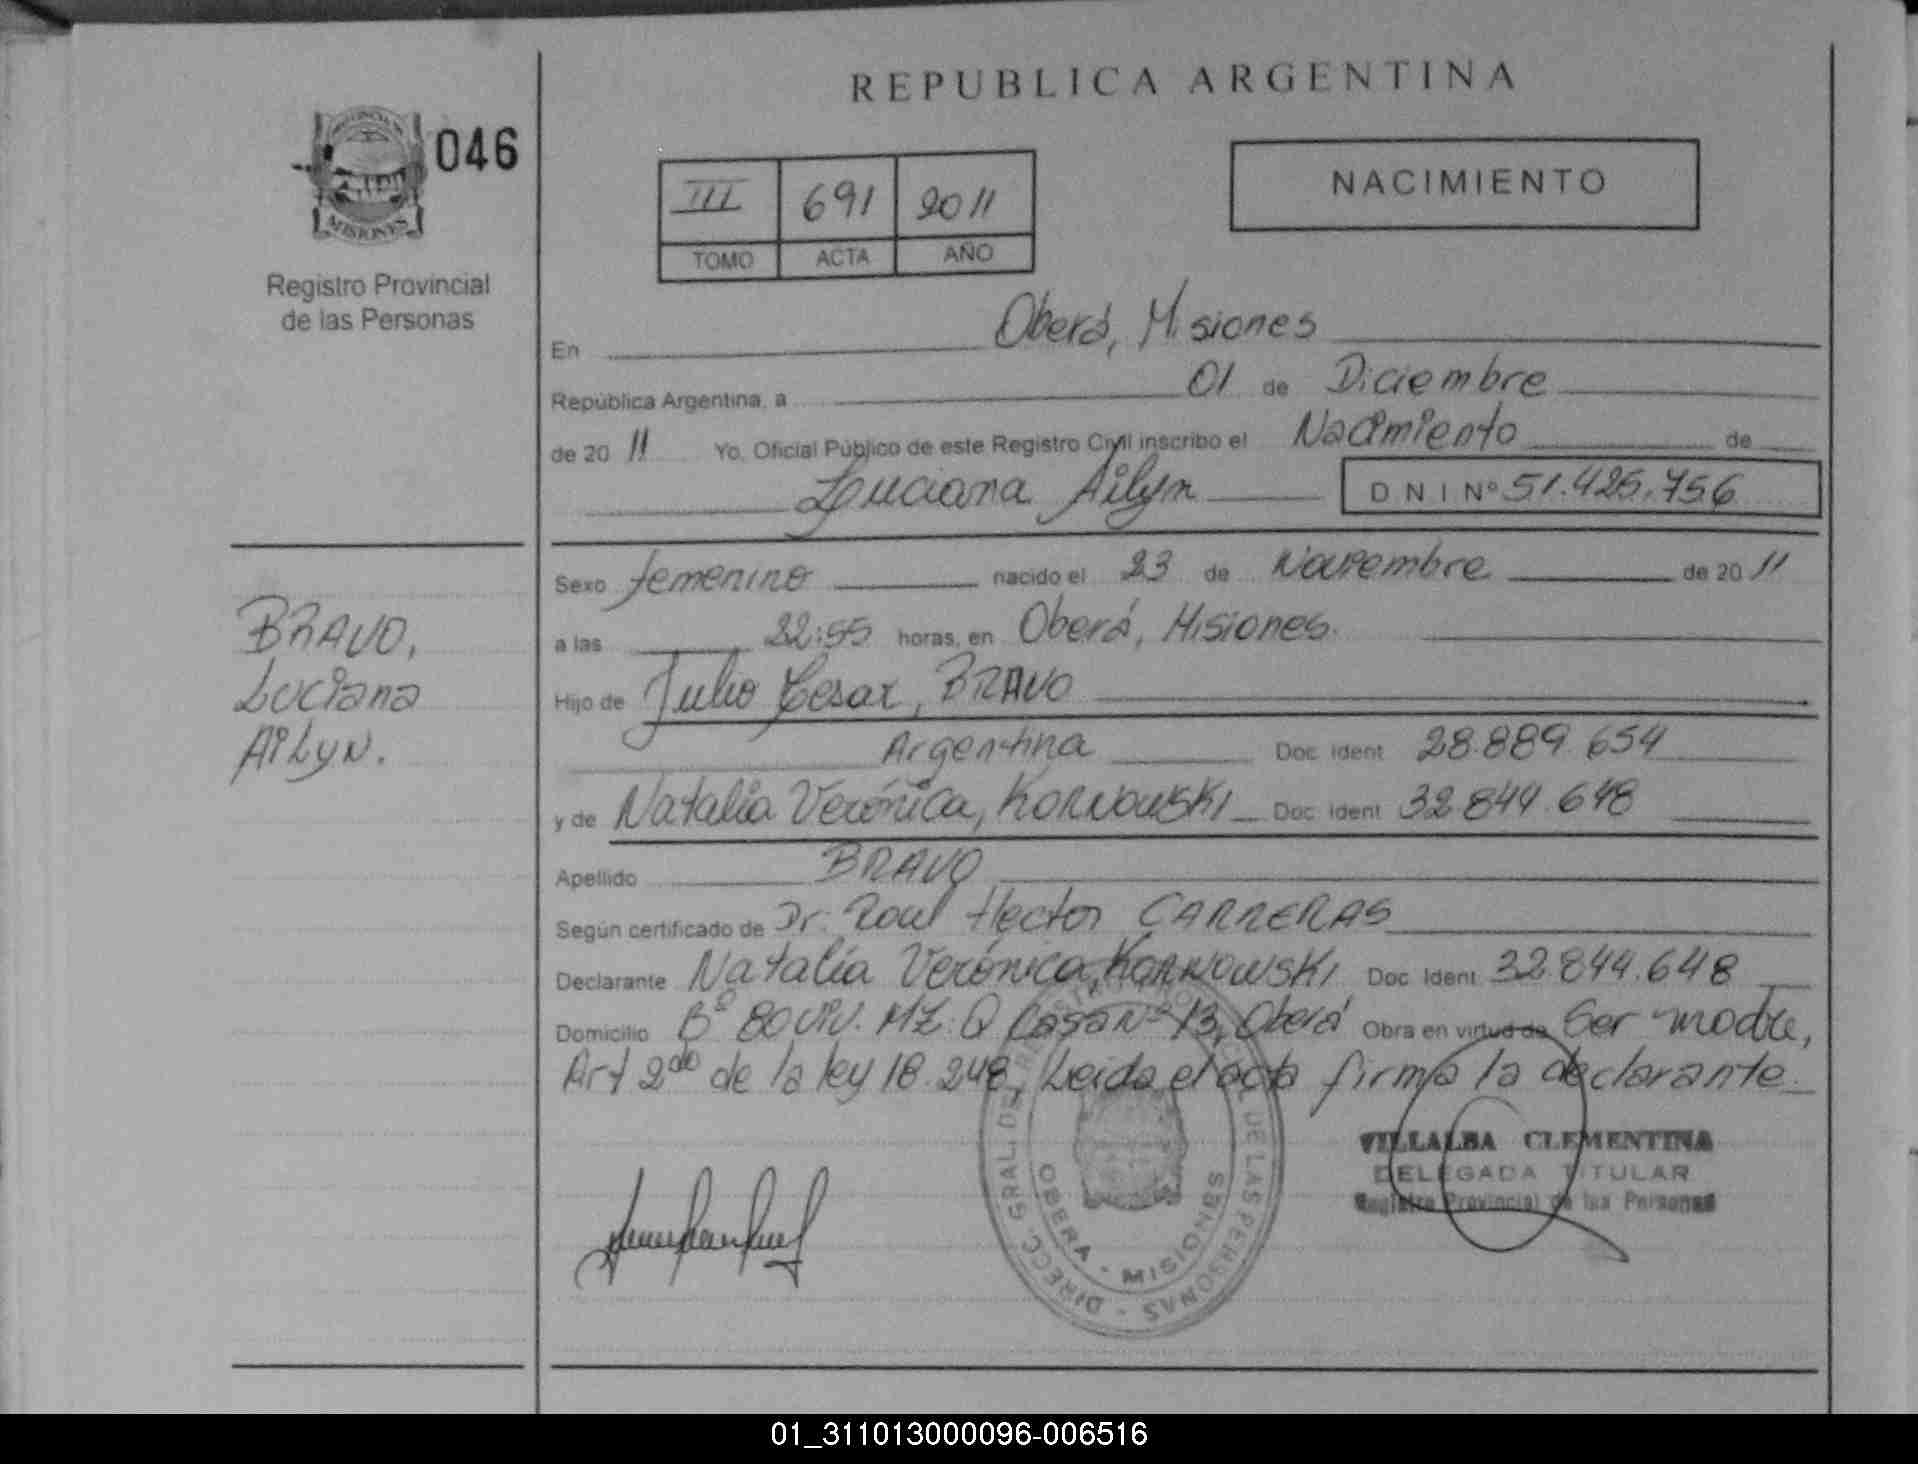 REPUBLICA ARGENTINA
046
MISIONES
Registro Provincial
de las Personas
NACIMIENTO
III 691 2011
TOMO ACTA AÑO
En Oberá, Misiones
República Argentina, a 01 de Diciembre
de 20 11 Yo, Oficial Público de este Registro Civil inscribo el Nacimiento de
Luciana Ailyn DNI Nº 51.425.756
BRAVO,
Luciana
AiLyN.
Sexo femenino nacido el 23 de Noviembre de 20 11
a las 22:55 horas, en Oberá, Misiones.
Hijo de Julio Cesar, BRAVO
Argentina Doc Ident 28.889.654
y de Natalia Verónica, KORNOWSKI Doc Ident 32.844.648
Apellido BRAVO
Según certificado de Dr. Raul Hector CARRERAS
Declarante Natalia Verónica, KORNOWSKI Doc Ident 32.844.648
Domicilio Bº 80 viv. MZ: Q Casa Nº 13, Oberá Obra en virtud de Ser madre,
Art 2do de la ley 18.248, Leida el acta firma la declarante.
DIRECC. GRAL. DEL REGISTRO PROVINCIAL DE LAS PERSONAS
OBERA - MISIONES
VILLALBA CLEMENTINA
DELEGADA TITULAR
Registro Provincial de las Personas
01_311013000096-006516